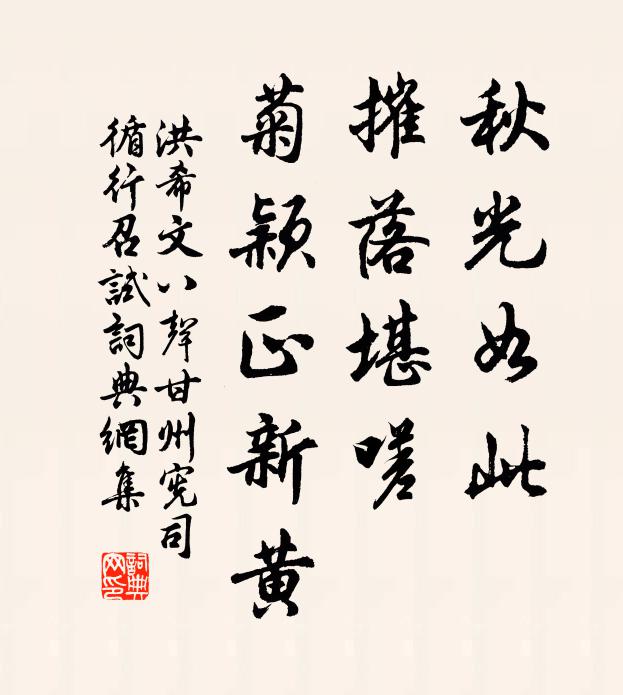 秋光如此
摧落堪嗟
菊颖正新黄
洪希文八聲甘州憲司
循行召試詞典網集
詞典网印